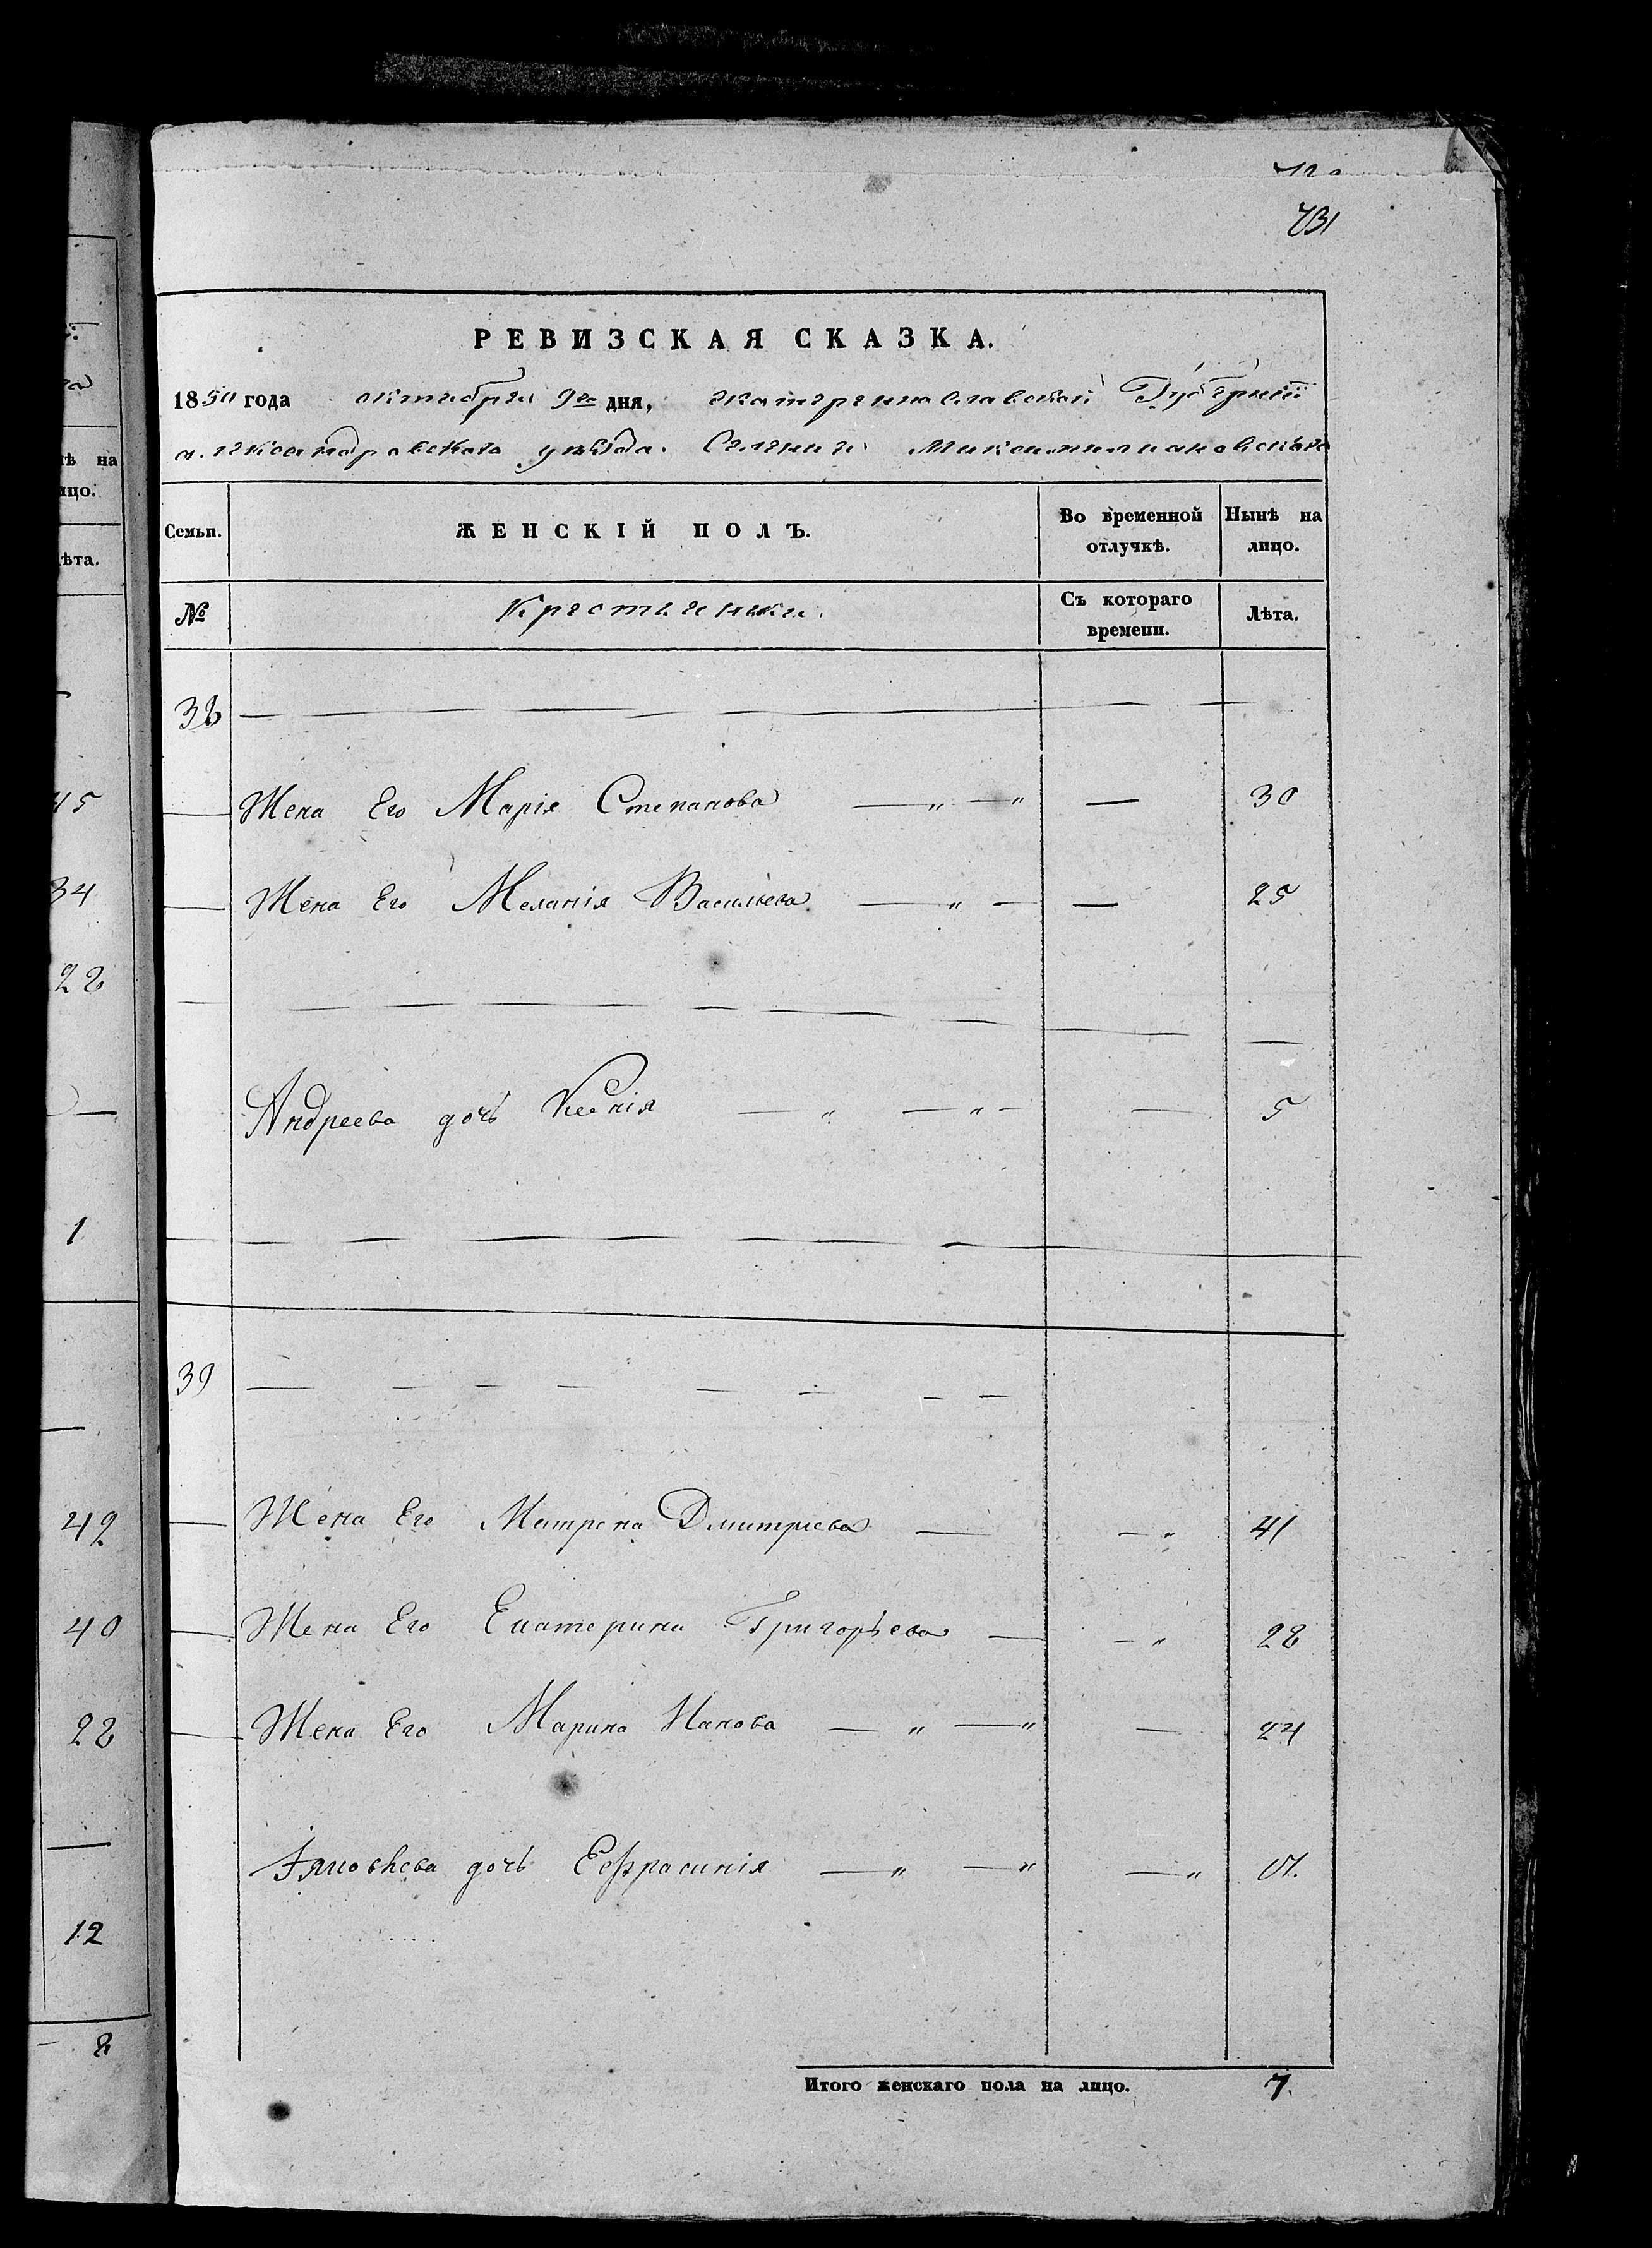 731
РЕВИЗСКАЯ СКАЗКА.
1850 года октября 9го дня, Екатеринославской Губернии
Александровского уѣзда. Селения Максимилиановского
ѣ на
ицо.
ѣта.
Семьи. ЖЕНСКІЙ ПОЛЪ. Во временной отлучкѣ. Нынѣ на лицо.
№ Крестьянки. Съ котораго времени. Лѣта.
38
45
Жена Его Марія Степанова — „ — „ — 30
34
Жена Его Меланія Васильева — „ — — 25
28
Андреева дочь Ксенія — „ — „ — — 5
1
39
42
Жена Его Матрена Дмитриева — — „ 41
40
Жена Его Екатерина Григорьева — — „ 28
28
Жена Его Марина Иванова — „ — „ — 24
Яковлева дочь Ефрасинія — „ — „ — „
12
8
Итого женскаго пола на лицо. 7.